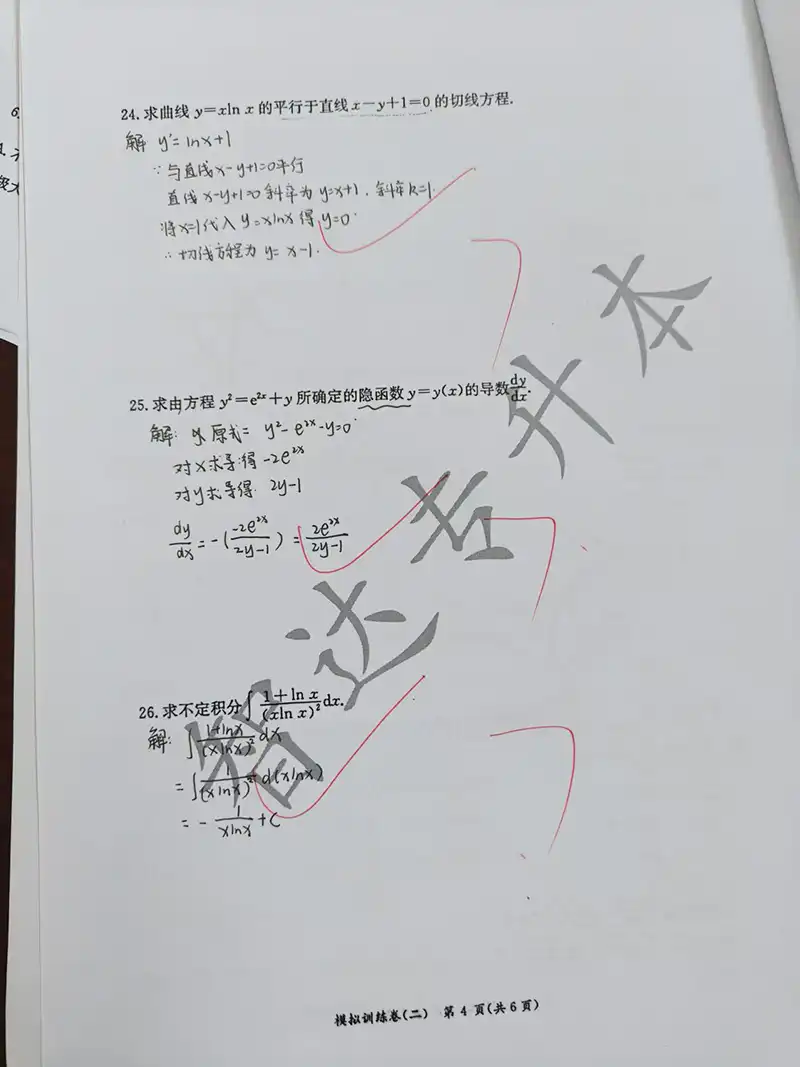 24.求曲线 y=xln x 的平行于直线 x-y+1=0 的切线方程.
解 y'=lnx+1
∵与直线x-y+1=0平行
直线 x-y+1=0 斜率为 y=x+1. 斜率k=1.
将x=1代入 y=xlnx 得 y=0.
∴切线方程为 y= x-1.
25.求由方程 y²=e²ˣ+y 所确定的隐函数 y=y(x)的导数dy/dx.
解: 原式= y²-e²ˣ-y=0
对x求导:得 -2e²ˣ
对y求导得. 2y-1
dy/dx = -(-2e²ˣ/2y-1) = 2e²ˣ/2y-1
26.求不定积分∫ 1+ln x/(xln x)² dx.
解: ∫ 1+lnx/(xlnx)² dx
=∫ 1/(xlnx)² d(xlnx)
= - 1/xlnx +C
7
7
7
智达吉升本
模拟训练卷(二) 第 4 页(共 6 页)